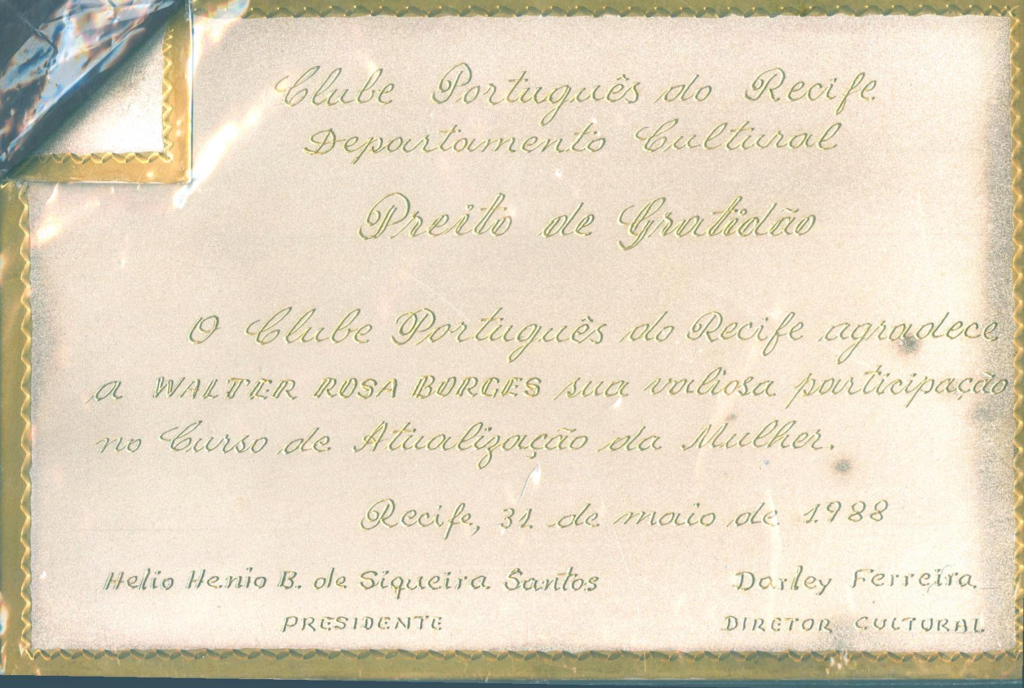 Clube Português do Recife
Departamento Cultural
Preito de Gratidão
O Clube Português do Recife agradece
a WALTER ROSA BORGES sua valiosa participação
no Curso de Atualização da Mulher.
Recife, 31 de maio de 1988
Helio Henio B. de Siqueira Santos Darley Ferreira
PRESIDENTE DIRETOR CULTURAL